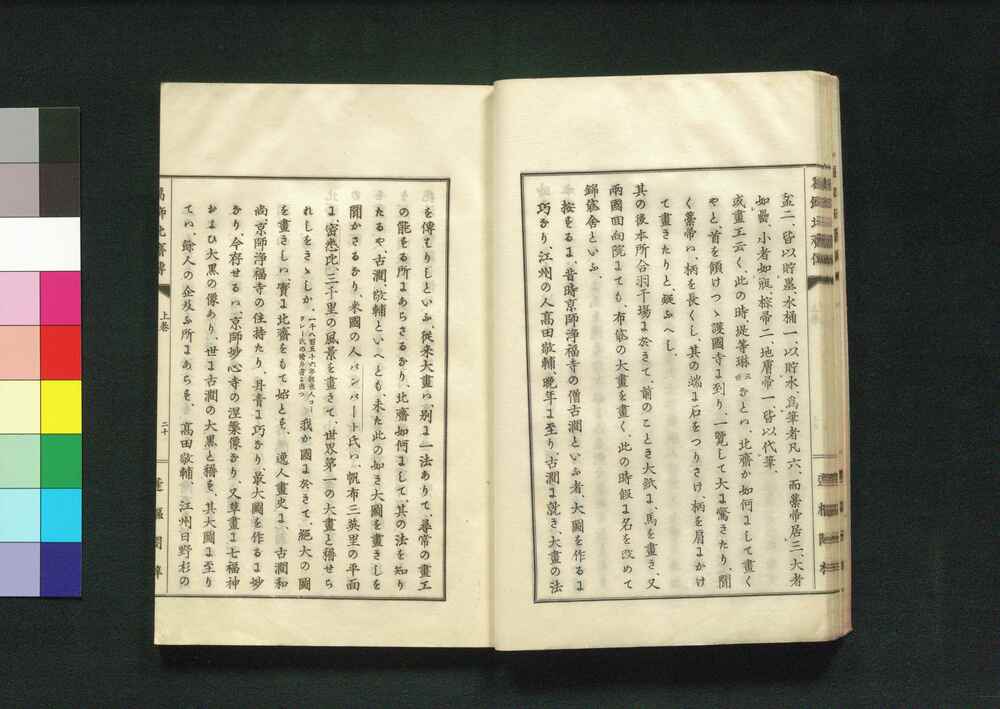 盆二、皆以貯墨、水桶一、以貯水、爲筆者凡六、而藁帚居三、大者
如罍、小者如瓶、椶帚二、地膚帚一、皆以代筆、
或畫工云く、此の時、堤等琳二世ひとり、北齋か如何にして畫く
やと、首を傾けつゝ護國寺に到り、一覽して大に驚きたり、聞
く藁帚に、柄を長くし、其の端に石をつりさけ、柄を肩にかけ
て畫きたりと、疑ふへし、
其の後本所合羽干場に於きて、前のことき大紙に、馬を畫き、又
兩國回向院にても、布袋の大畫を畫く、此の時假に名を改めて
錦袋舍といふ、
按をるに、昔時京師淨福寺の僧古澗といふ者、大圖を作るに
巧なり、江州の人高田敬輔、晩年に至り、古澗に就き、大畫の法
を傳もりしといふ、從來大畫に別に一法ありて、尋常の畫工
の能をる所にあらさるなり、北齋如何にして、其の法を知り
たるや、古澗、敬輔といへとも、未た此の如き大圖を畫きしを
聞かさるなり、米國の人バンバート氏に、帆布三英里の平面
に、密悉比、三千里の風景を畫きて、世界第一の大畫と稱せら
れしをきゝしか、我か國に於きて、絕大の圖
を畫きしに、實に北齋をもて始とを、逸人畫史に、古澗和
尚、京師淨福寺の住持たり、丹青に巧なり、最大圖を作るに妙
なり、今存せるに、京師妙心寺の涅槃像なり、又草畫に七福神
および大黑の像あり、世に古澗の大黑と稱を、其大圖に至り
ては、餘人の企及ふ所にあらを、高田敬輔、江州日野杉の
上卷
二十